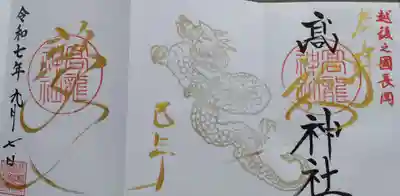 越後之國長岡
髙
神社
高龍神社
令和七年九月七日
高龍神社